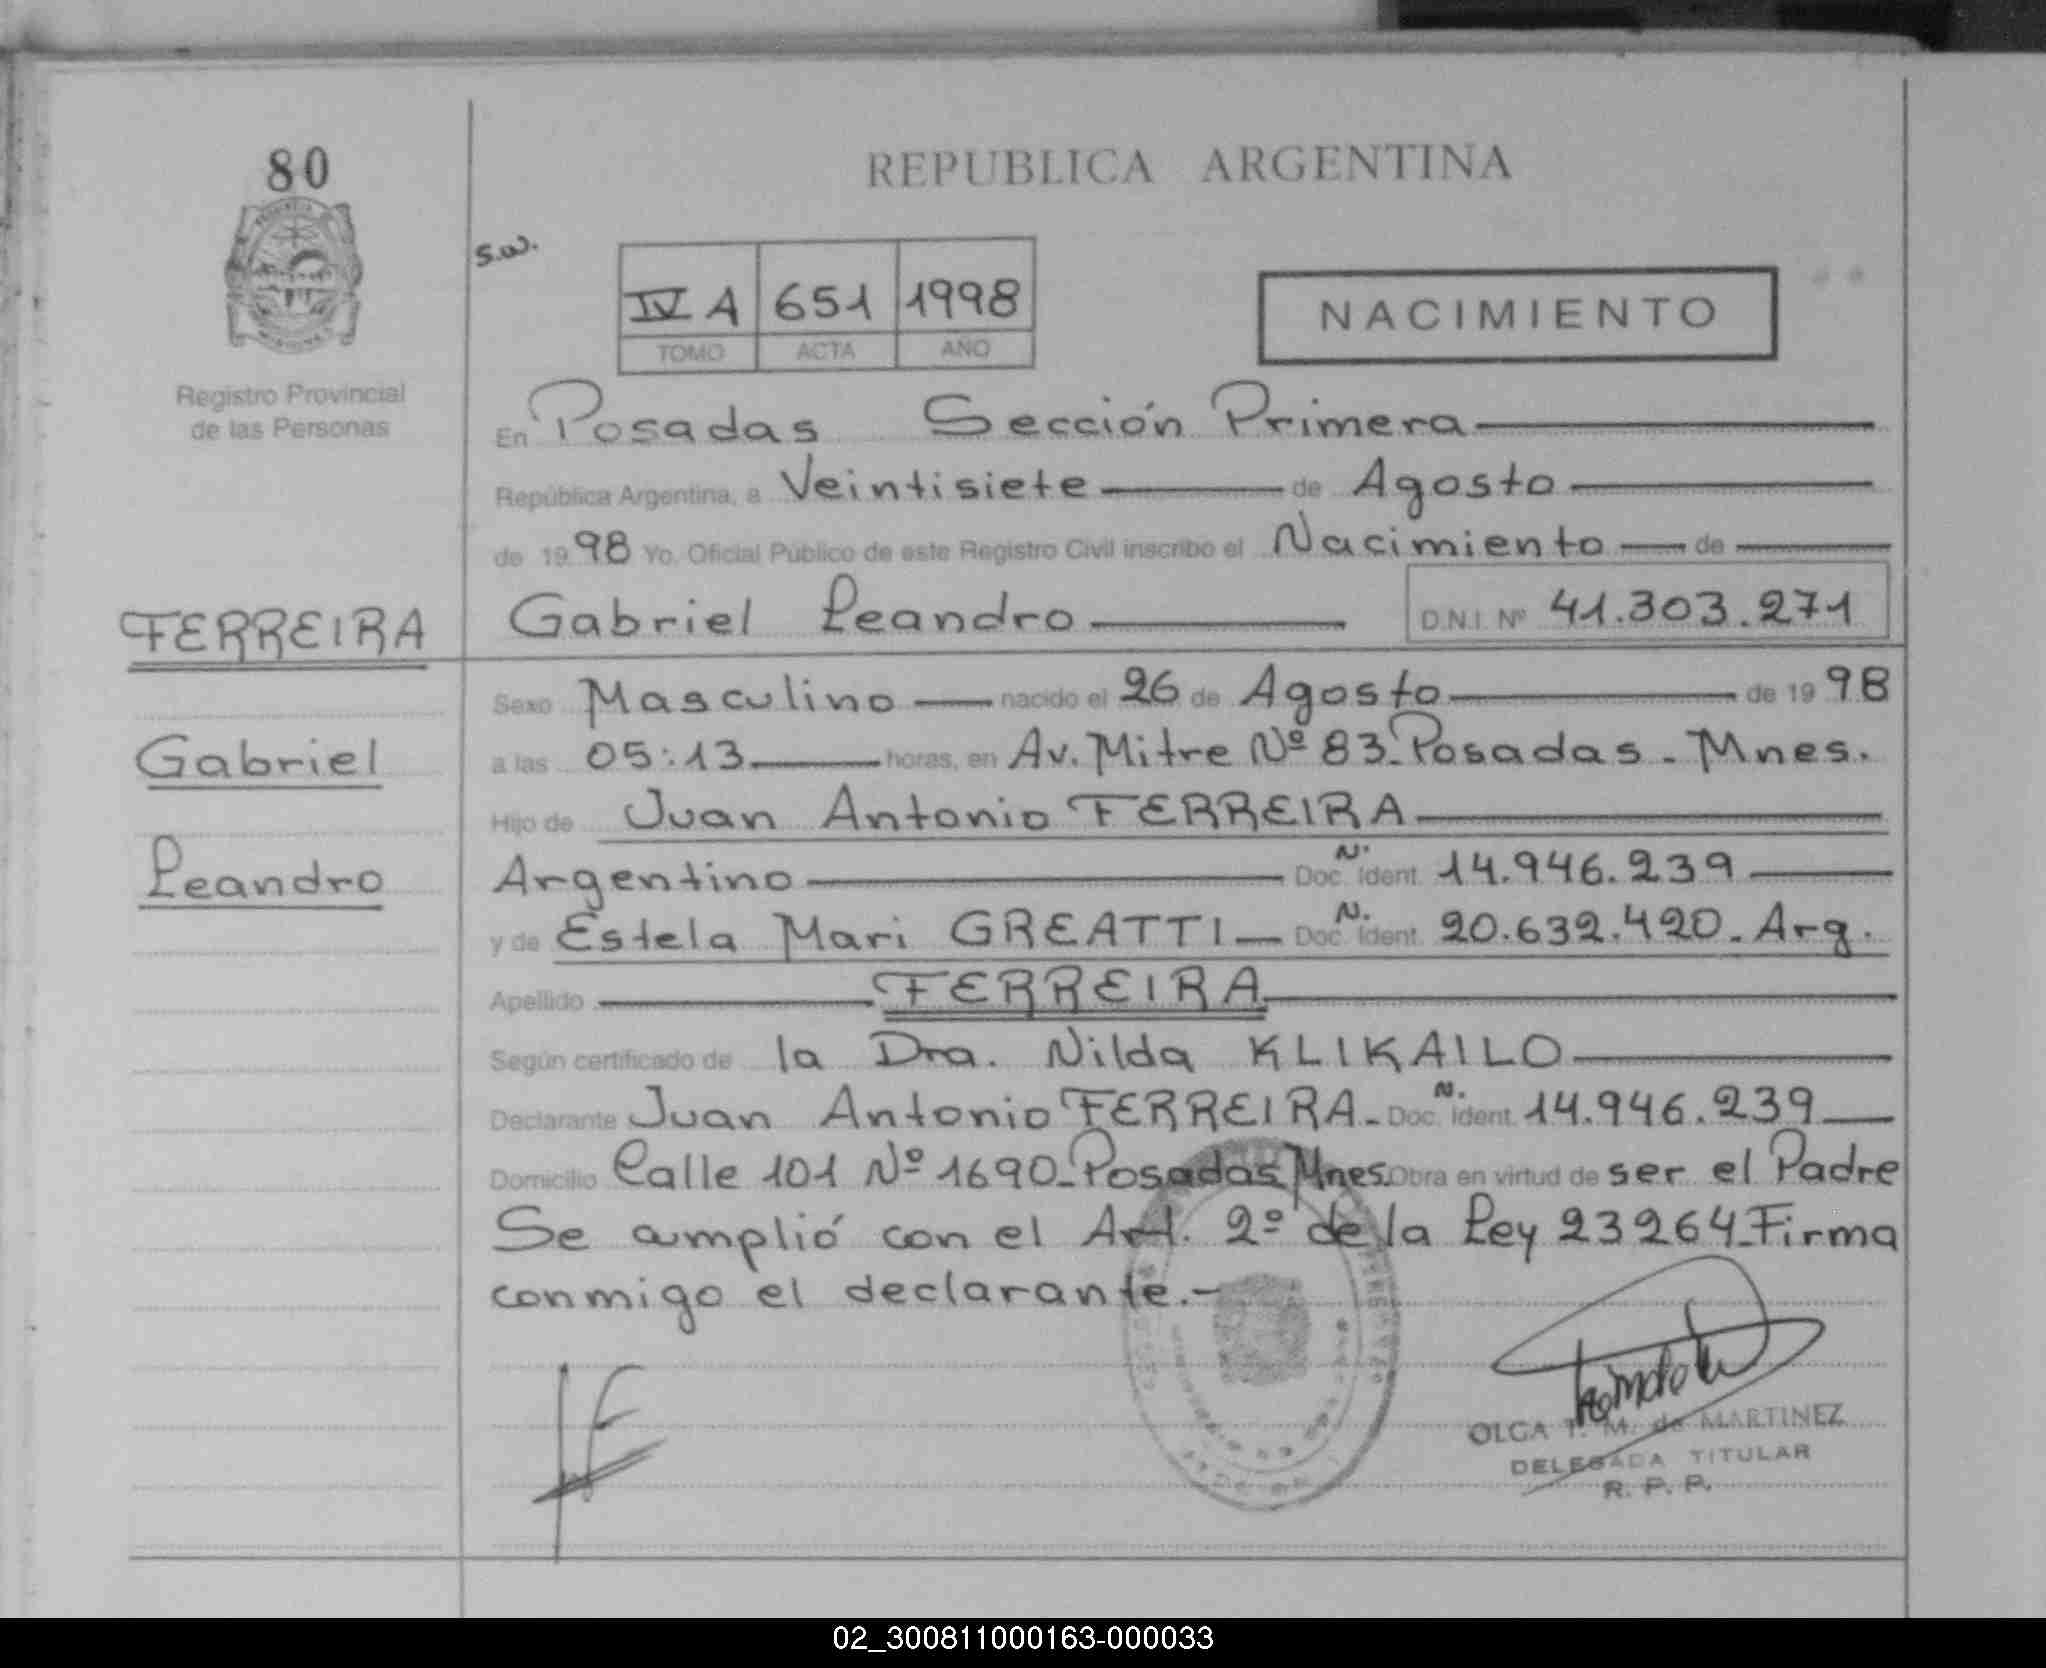 80
REPUBLICA ARGENTINA
s.w.
IV A 651 1998
TOMO ACTA AÑO
NACIMIENTO
Registro Provincial
de las Personas
En Posadas Sección Primera
República Argentina, a Veintisiete de Agosto
de 19 98 Yo, Oficial Público de este Registro Civil inscribo el Nacimiento de
FERREIRA
Gabriel Leandro D.N.I. Nº 41.303.271
Sexo Masculino nacido el 26 de Agosto de 19 98
Gabriel
a las 05:13 horas, en Av. Mitre Nº 83 - Posadas - Mnes.
Hijo de Juan Antonio FERREIRA
Leandro
Argentino Doc. N. Ident. 14.946.239
y de Estela Mari GREATTI - Doc. N. Ident. 20.632.420. Arg.
Apellido FERREIRA
Según certificado de la Dra. Nilda KLIKAILO
Declarante Juan Antonio FERREIRA - Doc. N. Ident. 14.946.239
Domicilio Calle 101 Nº 1690 - Posadas Mnes. Obra en virtud de ser el Padre
Se amplió con el Art. 2º de la Ley 23264 - Firma
conmigo el declarante.-
OLGA T. M. de MARTINEZ
DELEGADA TITULAR
R. P. P.
02_300811000163-000033